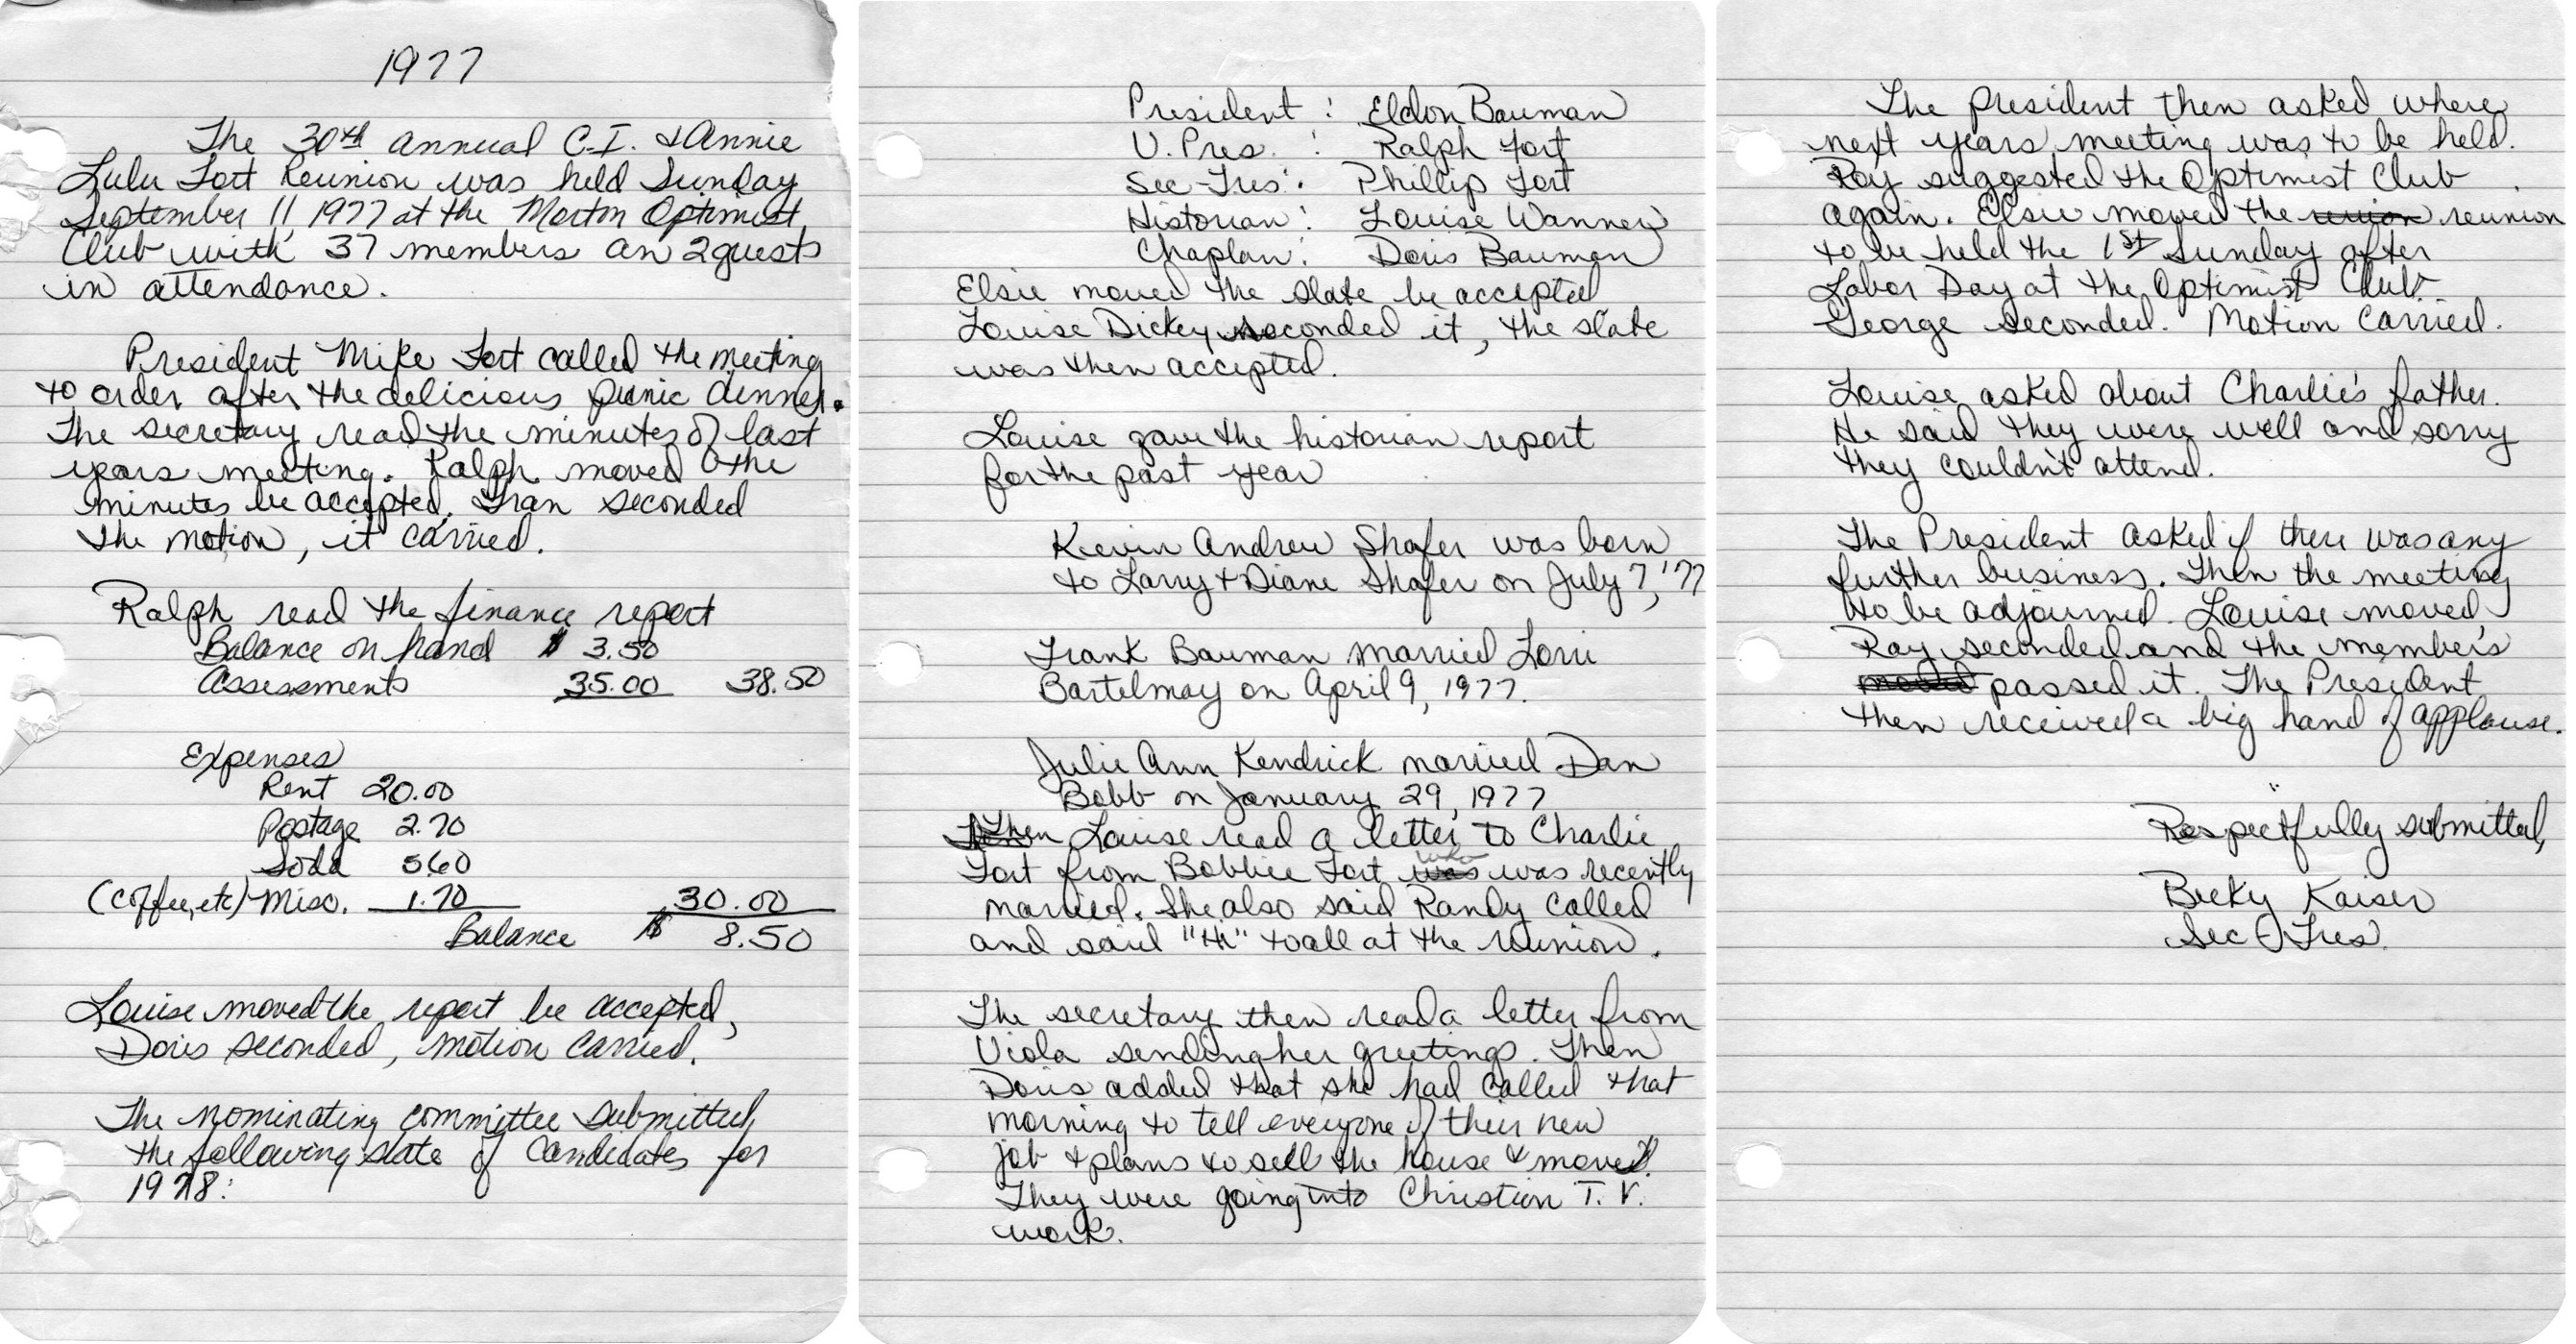 1977
The 30th annual C.I. & Annie
Lulu Fort Reunion was held Sunday
September 11, 1977 at the Morton Optimist
Club with 37 members an 2 guests
in attendance.
President Mike Fort called the meeting
to order after the delicious picnic dinner.
The secretary read the minutes of last
years meeting. Ralph moved the
minutes be accepted, Fran seconded
the motion, it carried.
Ralph read the finance report
Balance on hand $ 3.50
Assessments 35.00 38.50
Expenses
Rent 20.00
Postage 2.70
Soda 5.60
(coffee, etc) Misc. 1.70 30.00
Balance $ 8.50
Louise moved the report be accepted,
Doris seconded, motion carried.
The nominating committee submitted
the following slate of candidates for
1978:
President : Eldon Bauman
V. Pres. : Ralph Fort
Sec-Tres: Phillip Fort
Historian: Louise Wanner
Chaplan: Doris Bauman
Elsie moved the slate be accepted
Louise Dickey seconded it, the slate
was then accepted.
Louise gave the historian report
for the past year
Kevin Andrew Shafer was born
to Larry & Diane Shafer on July 7, '77
Frank Bauman married Lorri
Bartelmay on April 9, 1977.
Julie Ann Kendrick married Dan
Bobb on January 29, 1977
Then Louise read a letter to Charlie
Fort from Bobbie Fort who was was recently
married. She also said Randy called
and said "Hi" to all at the reunion.
The secretary then read a letter from
Viola sending her greetings. Then
Doris added that she had called that
morning to tell everyone of their new
job & plans to sell the house & move.
They were going into Christian T.V.
work.
The president then asked where
next years meeting was to be held.
Ray suggested the Optimist Club
again. Elsie moved the union reunion
to be held the 1st Sunday after
Labor Day at the Optimist Club.
George seconded. Motion carried.
Louise asked about Charlie's father.
He said they were well and sorry
they couldn't attend.
The President asked if there was any
further business. Then the meeting
to be adjourned. Louise moved,
Ray seconded and the member's
passed it. The President
then received a big hand of applause.
Respectfully submitted,
Becky Kaiser
Sec-Tres.